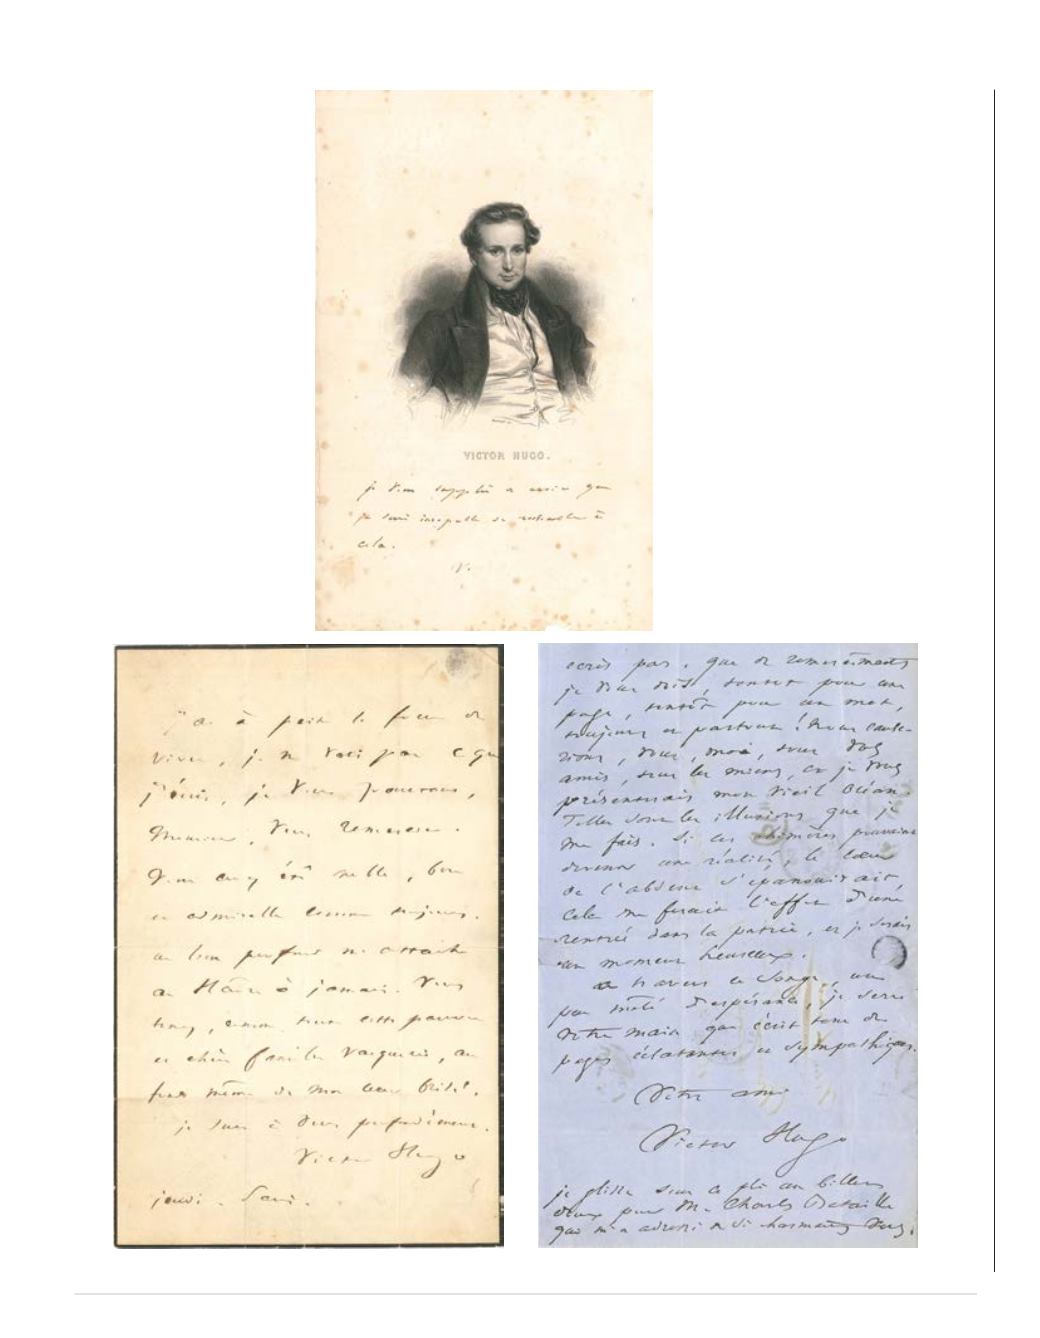 VICTOR HUGO.
je vous supplie de croire que
je suis incapable de
cela.
V.
J'ai à peine la force de
vivre, je ne vois pas ce que
j'écris, je vous
Monsieur, vous remercier.
Vous avez été noble, bon
et admirable comme toujours.
un lien profond me attache
au Hâvre à jamais. Vous
tous, comme toute cette pauvre
et chère famille Vacquerie, au
fond même de mon cœur brisé.
je suis à vous profondément.
Victor Hugo
jeudi. Paris.
écris pas. que de remerciements
je vous dois, tantôt pour une
page, tantôt pour un mot,
toujours et partout ! Nous cause-
rions, vous, moi, sous vos
amis, sur les miens, et je vous
présenterais mon vieil Océan.
Telles sont les illusions que je
me fais. Si ces chimères pouvaient
devenir une réalité, le cœur
de l'absent s'épanouirait,
cela me ferait l'effet d'une
rentrée dans la patrie, et je serais
un moment heureux.
à travers ce songe, un
peu mêlé d'espérance, je serre
votre main qui écrit tant de
pages éclatantes et sympathiques.
Votre ami
Victor Hugo
je glisse sous ce pli un billet
doux pour M. Charles Bataille
qui m'a adressé de si charmants vers.